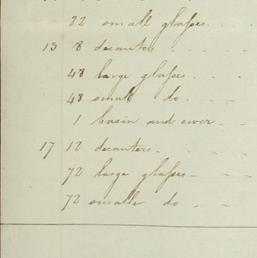 22 small glasses
13 8 decanters
48 large glasses
48 small do
1 basin and ewer
17 12 decanters
72 large glasses
72 smaller do